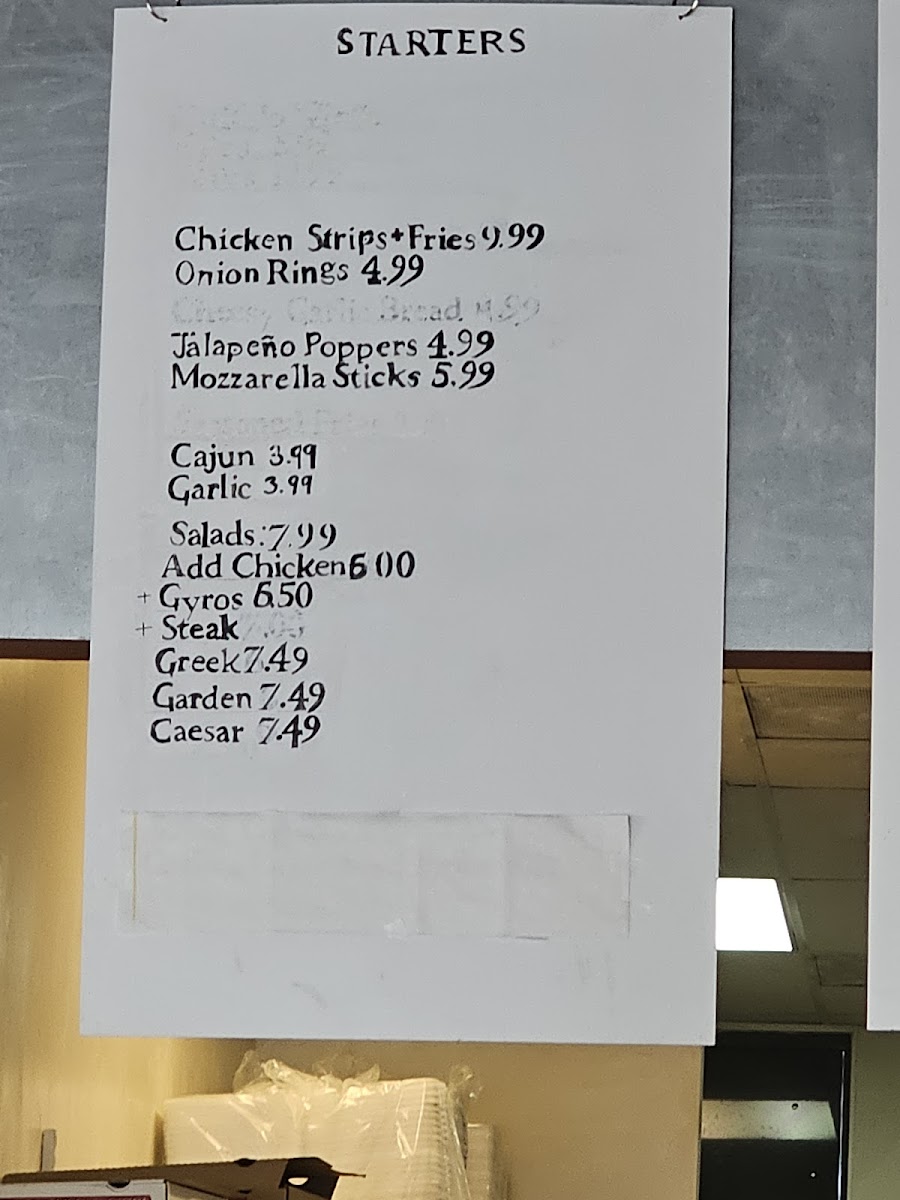 STARTERS
Chicken Strips+Fries 9.99
Onion Rings 4.99
Cheesy Garlic Bread 4.99
Jalapeño Poppers 4.99
Mozzarella Sticks 5.99
Cajun 3.99
Garlic 3.99
Salads: 7.99
Add Chicken 6 00
+ Gyros 6.50
+ Steak
Greek 7.49
Garden 7.49
Caesar 7.49